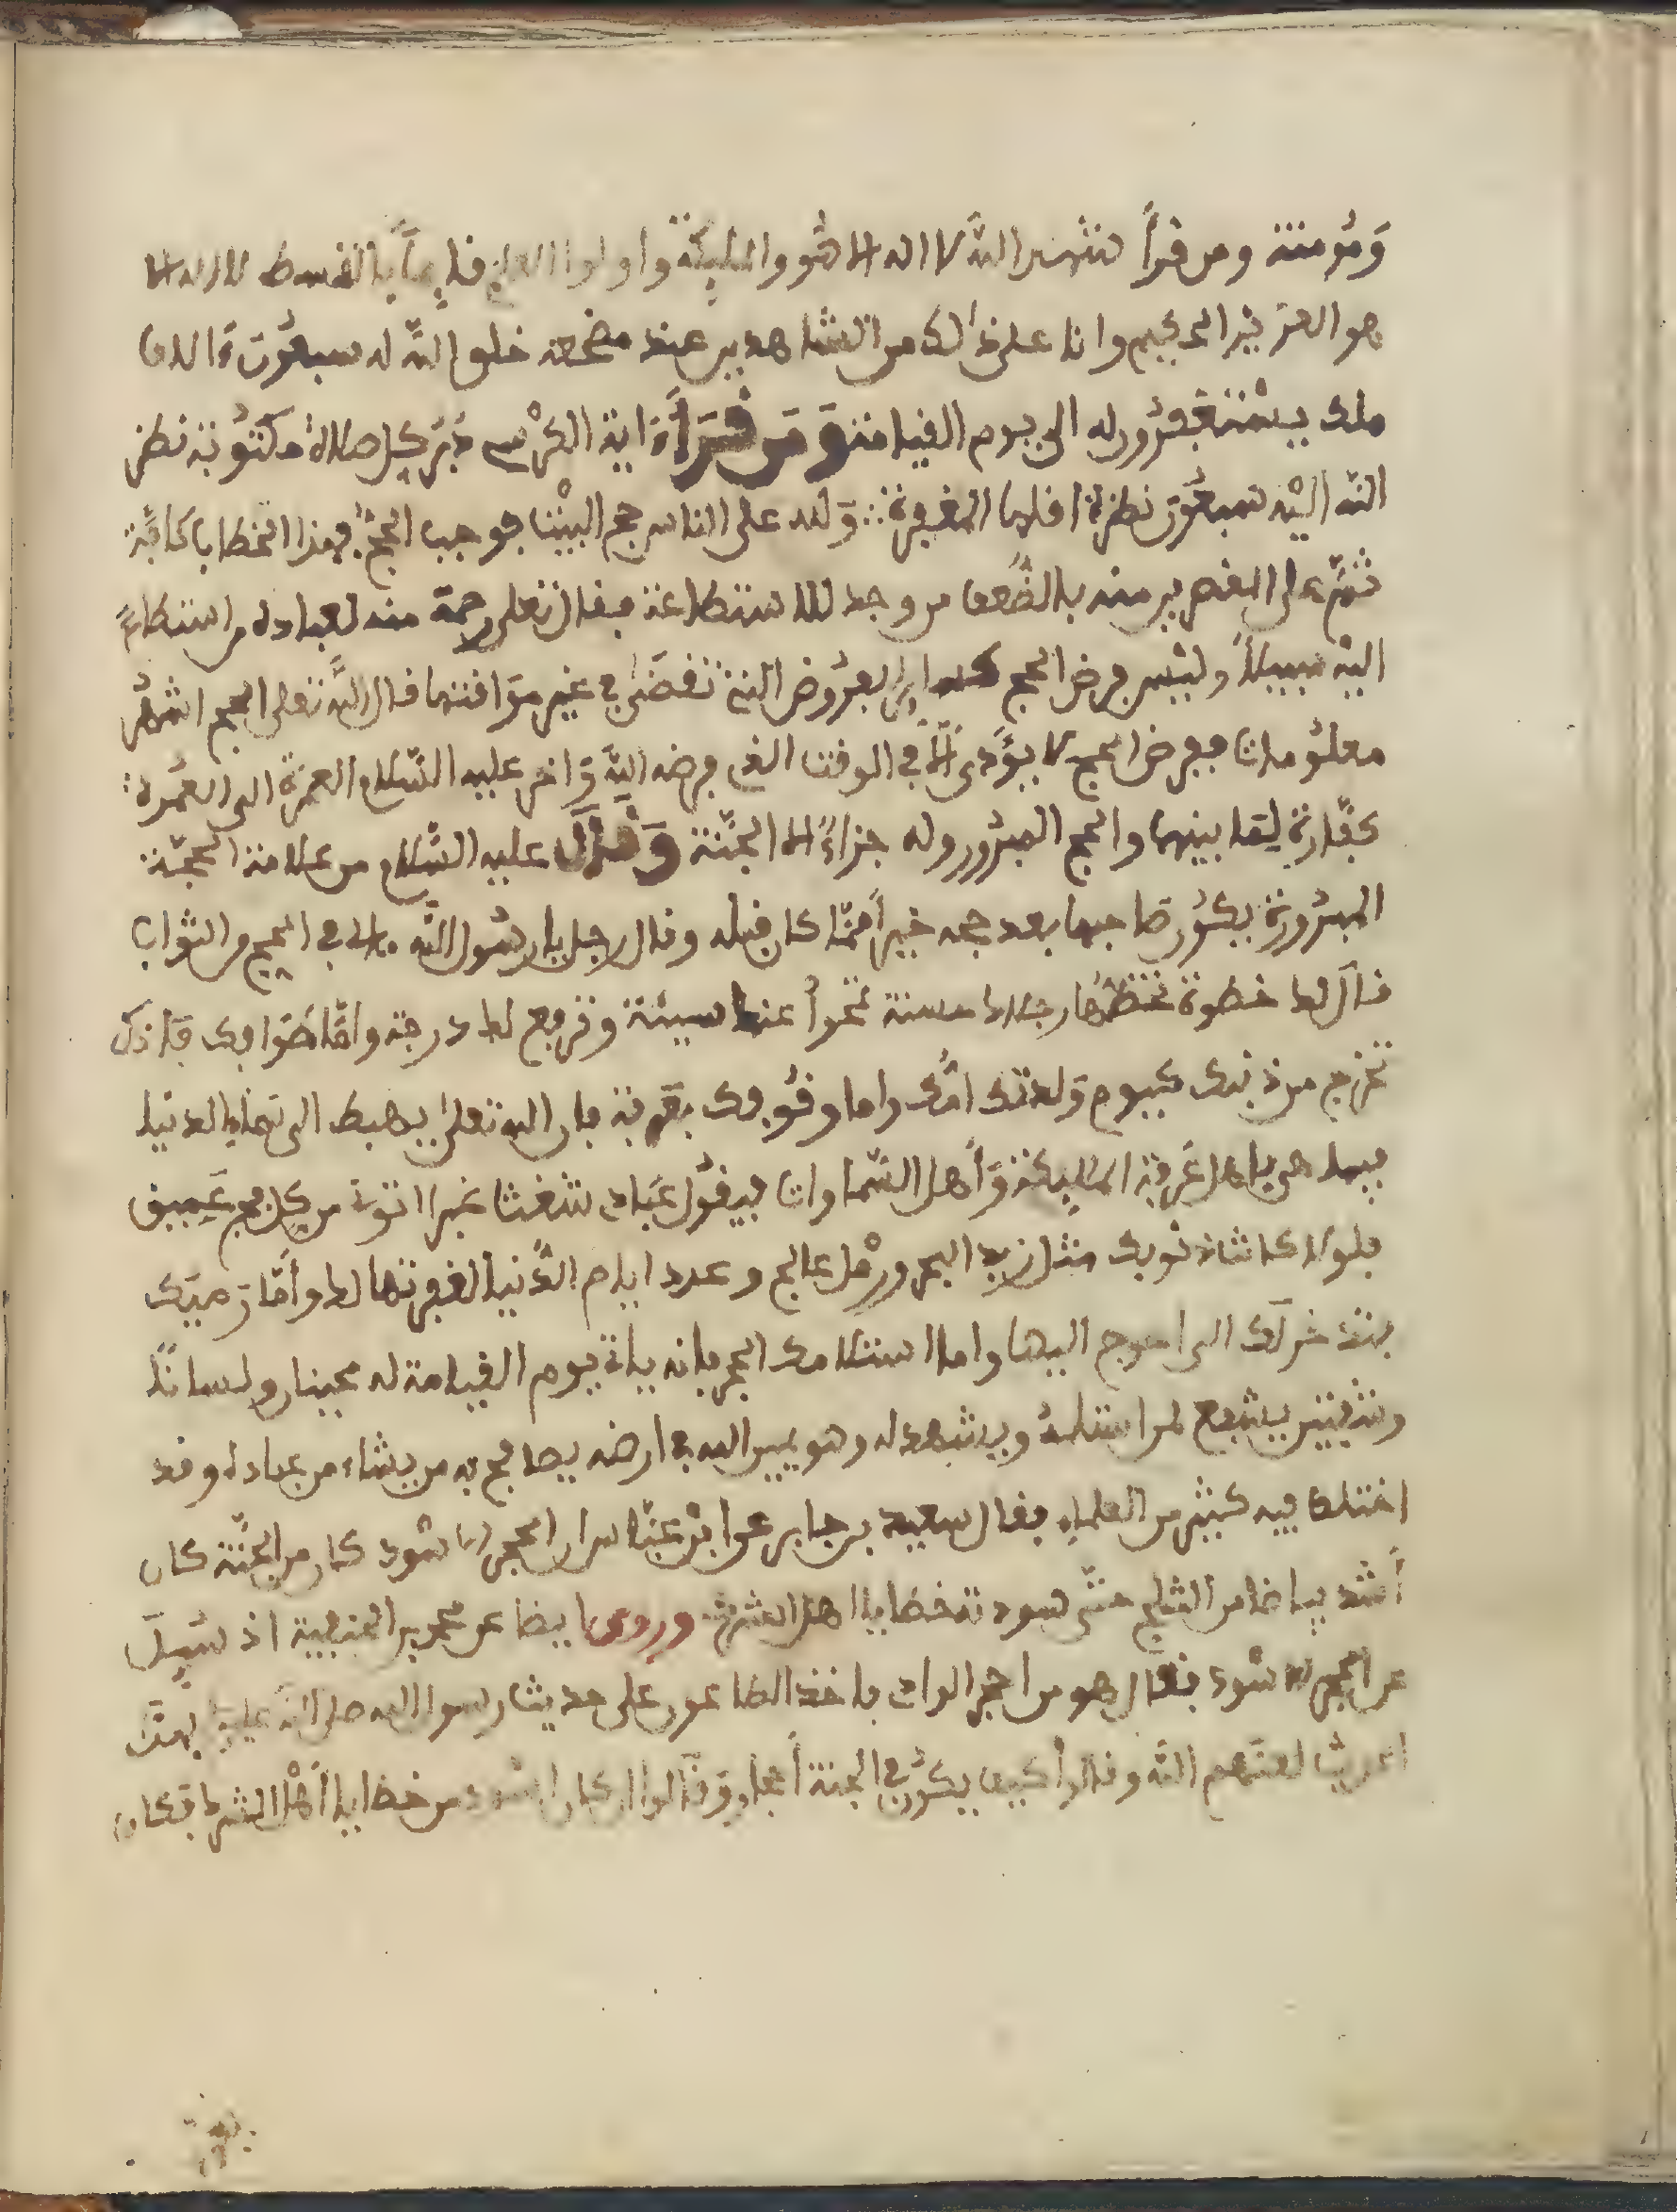 وَمُؤمنة ومن قرأ شهد الله لا اله الا هُو والمليِكة واولوا العلم قايماً بالقسط لا اله الا
هو العزيز الحكيم وانا على ذالك من الشاهدين عند مضجعه خلق الله له سبعُون الف
ملك يستغفرُون له الى يوم القيامة وَمَن قَرَأَ اية الكرْسي دُبُر كل صلاة مكتُوبة نظر
الله اليْه سبعُون نظرة اقلها المغفرة ∴ وَلله على الناس حج البيْت فوجب الحجّ بهذا الخطاب كافّة
ثمّ على الغير منه بالضُعف من وجد للاستطاعة فقال تعلى رحمة منه لعباده من استطاعَ
اليْه سبيلاً وليْس فرض الحج كساير الفرُوض التي تقضَى في غير موَاقتها قال اللَّه تعلى الحج اشهُر
معلُومات ففرض الحج لا يؤَدى الاّ في الوقت الذي فرضه اللَّه وَاخبر عليه السّلام العمرة الى العمُرة
كفّارة لِما بينهما والحج المبرُور وله جزاءً الا الجنّة وَقَالَ عليه السّلام من علامة الحجّة
المبرُورة يكُون صَاحبها بعد حجه خيراً ممّا كان قبله وقال رجل يا رسُول اللَّه مالي في الحج من الثواب
قاَل لك خطوة تخطُها رجلك حسنة تمحواْ عنك سيئة وترفع لك درجة وامّا طَوَافك فَانك
تخرج من ذنبك كيوم وَلدتك امُّك واما وقُوفك بعَرفة فان الله تعلى يهبط الى سَماءِ الدنيا
فيباهي باهل عَرفة المليِكة وَأهل السّماوات فيقُول عبَادي شعْثا غبرا اتوني من كل فج عَمِيق
فلو كانت ذنوبك مثل زبد البحر ورمْل عالج وعدد ايام الدُّنيا لغفرتها لك وأمّا رَميَك
فتدخر لَك الى احوج اليها واما استلامك الحجر فانه ياتي يوم القيامة له عينان ولساناً
وشفتين يشفع لمن استلمهُ ويشهد له وهو يمين الله في ارضه يصافح به من يشاء من عباده وقد
اختلف فيه كثير من العلماءِ فقال سعيد بن جابر عن ابنْ عبّاس ان الحجر الاسْود كان من الجنّة كان
أشد بياضا من الثلج حتّى سود ته خطايا اهل الشرك وروي ايضا عن محمد بن الحنفية اذ سُيِلَ
عن الحجر الاسْود فقَال هو من احجر الوادي فاخذ الطاعون على حديث رسول الله صلى اللَّه عليه بهتَ
 لعنَهم اللَّه وقالوا كيف يكُون في الجنة أحجار وَقَالوا ان كان اسْود من خطايا أهْل الشرك فكان